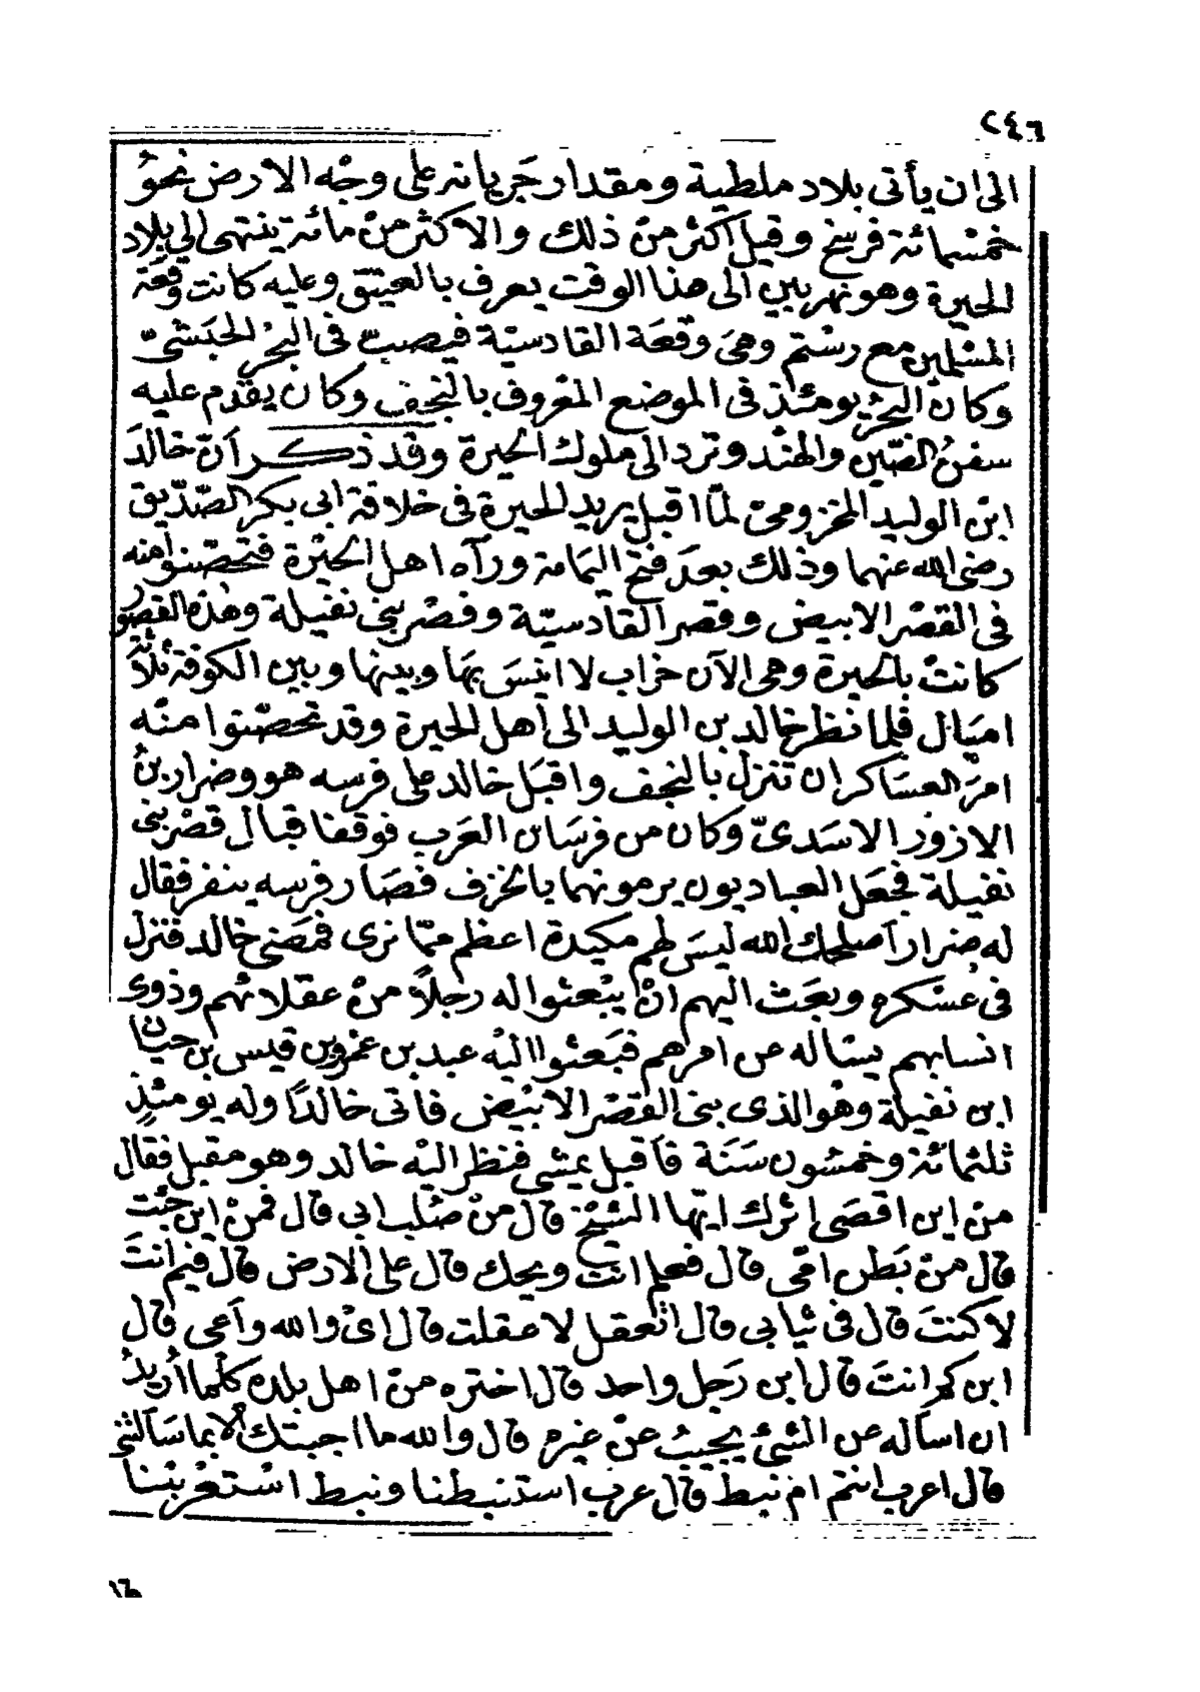 ٢٤٦
الى ان يأتى بلاد ملطية ومقدار جَريانه على وجْه الارض نحوُ
خمْسمائة فرسخ وقيل اكثر منْ ذلك والاكثر منْ مائة ينتهى الى بلاد
الحيرة وهو نهر بين الى هذا الوقت يعرف بالعيتق وعليه كانت وقعَة
المسْلمين مع رسْتم وهىَ وقعَة القادسيّة فيصبّ فى البحْر الحبَشىّ
وكان البحْر يومئذ فى الموضع المعْروف بالنجف وكان يقدم عليه
سفنُ الصّين والهنْد وترد الى ملوك الحيرة وقد ذكر أنّ خالدَ
ابن الوليد المخزومىّ لمّا اقبل يريد الحيرة فى خلافة ابى بكر الصّدّيق
رضى الله عنهما وذلك بعدَ فتح اليمامة ورآه اهل الحيْرة فتحصّنوا منه
فى القصْر الابيض وقصر القادسيّة وقصْر بنى نفيلة وهذه القصور
كانتْ بالحيرة وهى الآن خراب لا انيسَ بهَا وبينها وبين الكوفة ثلاثة
اميَال فلما نظر خالد بن الوليد الى أهل الحيرة وقد تحصّنوا منْه
امرَ العسَاكر ان تنزل بالنجف واقبَل خالد على فرسه هو وضرار بنُ
الازور الاسَدىّ وكان من فرسَان العَرب فوقفا قبال قصْر بنى
نفيلة فجعَل العباديون يرمونهما بالخزف فصَار فرسه ينفر فقال
له ضرار اصلحك الله ليسَ لهم مكيدة اعظم ممّا نرى فمضى خالد فنزل
فى عسْكره وبعَث اليهم انْ يبْعثوا اله رجلاً منْ عقلائهم وذوى
انسابهم يسْاله عن امرهم فبَعثوا اليْه عبد بن عمْرو بن قيس بن حيان
ابن نفيلة وهُو الذى بنى القصْر الابْيض فاتى خالدًا وله يومئذٍ
ثلثمائة وخمسُون سَنَة فأقبل يمشى فنظر اليْه خالد وهو مقبل فقال
منْ اين اقصَى اثرك ايّها الشيْخ قال منْ صُلب ابى قال فمنْ اين جئت
قال منْ بَطن امّى قال فعلم انت ويحك قال على الارض قال فيم انتَ
لا كنتَ قال فى ثيابى قال اتعقل لا عقلت قال اىْ والله وأعى قال
ابن كم انتَ قال ابن رَجل واحد قال اختره منْ اهل بلده كلما اريدُ
ان اسأله عن الشئ يجيبُ عنْ غيره قال والله ما اجبتك الا بما سَألتنى
قال اعرب انتم ام نبط قال عرب استنبطنا ونبط اسْتعْربْنا
١٦